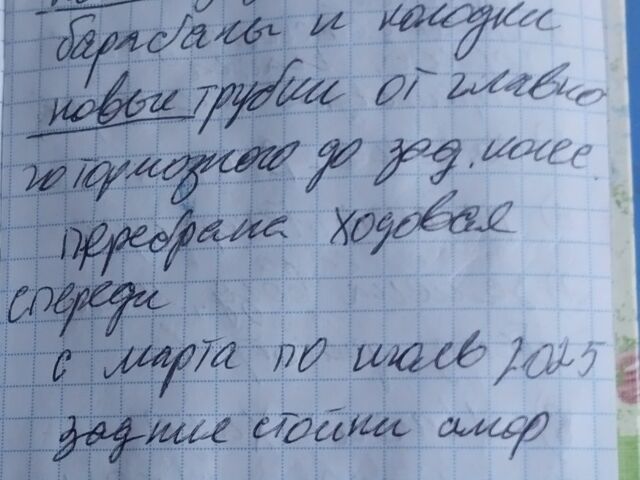 барабаны и колодки
новые трубки от главно
го тормозного до зад. колес.
перебрана ходовая
спереди
с марта по июль 2025
задние стойки амор